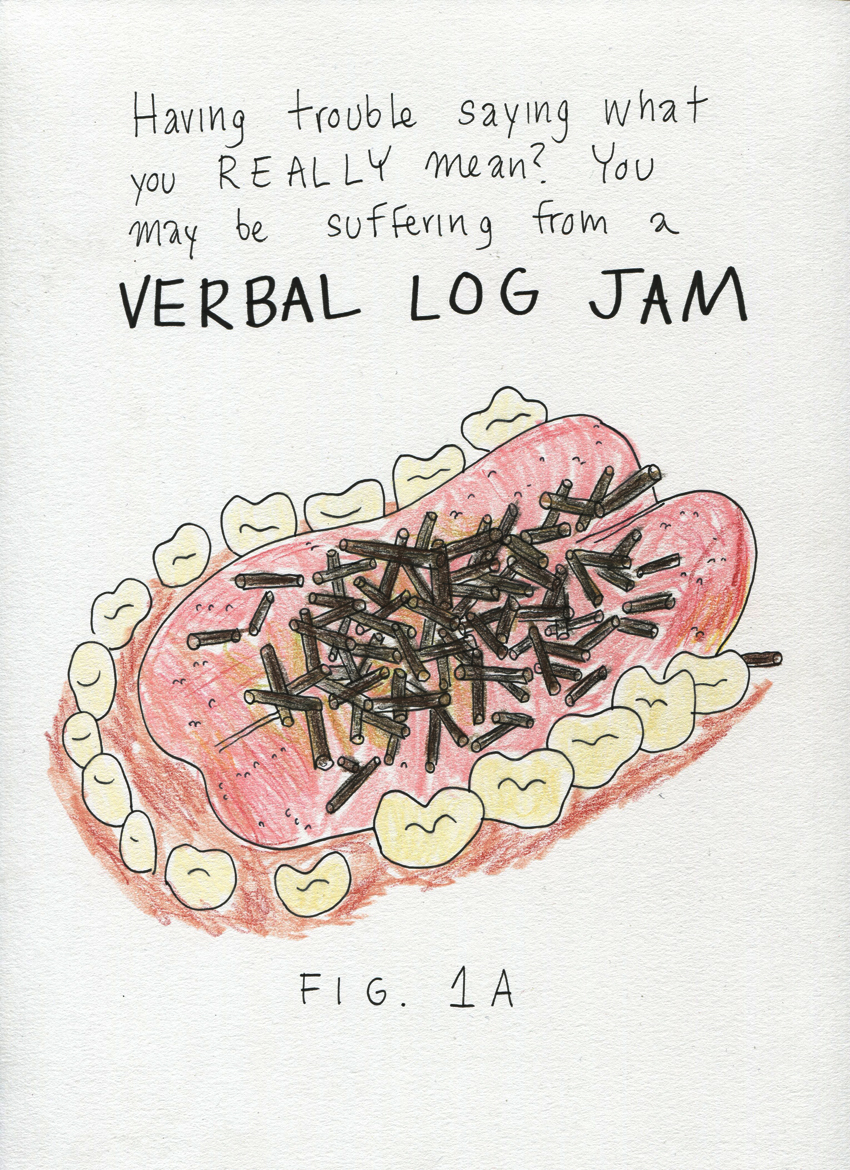 Having trouble saying what
you REALLY mean? You
may be suffering from a
VERBAL LOG JAM
FIG. 1A